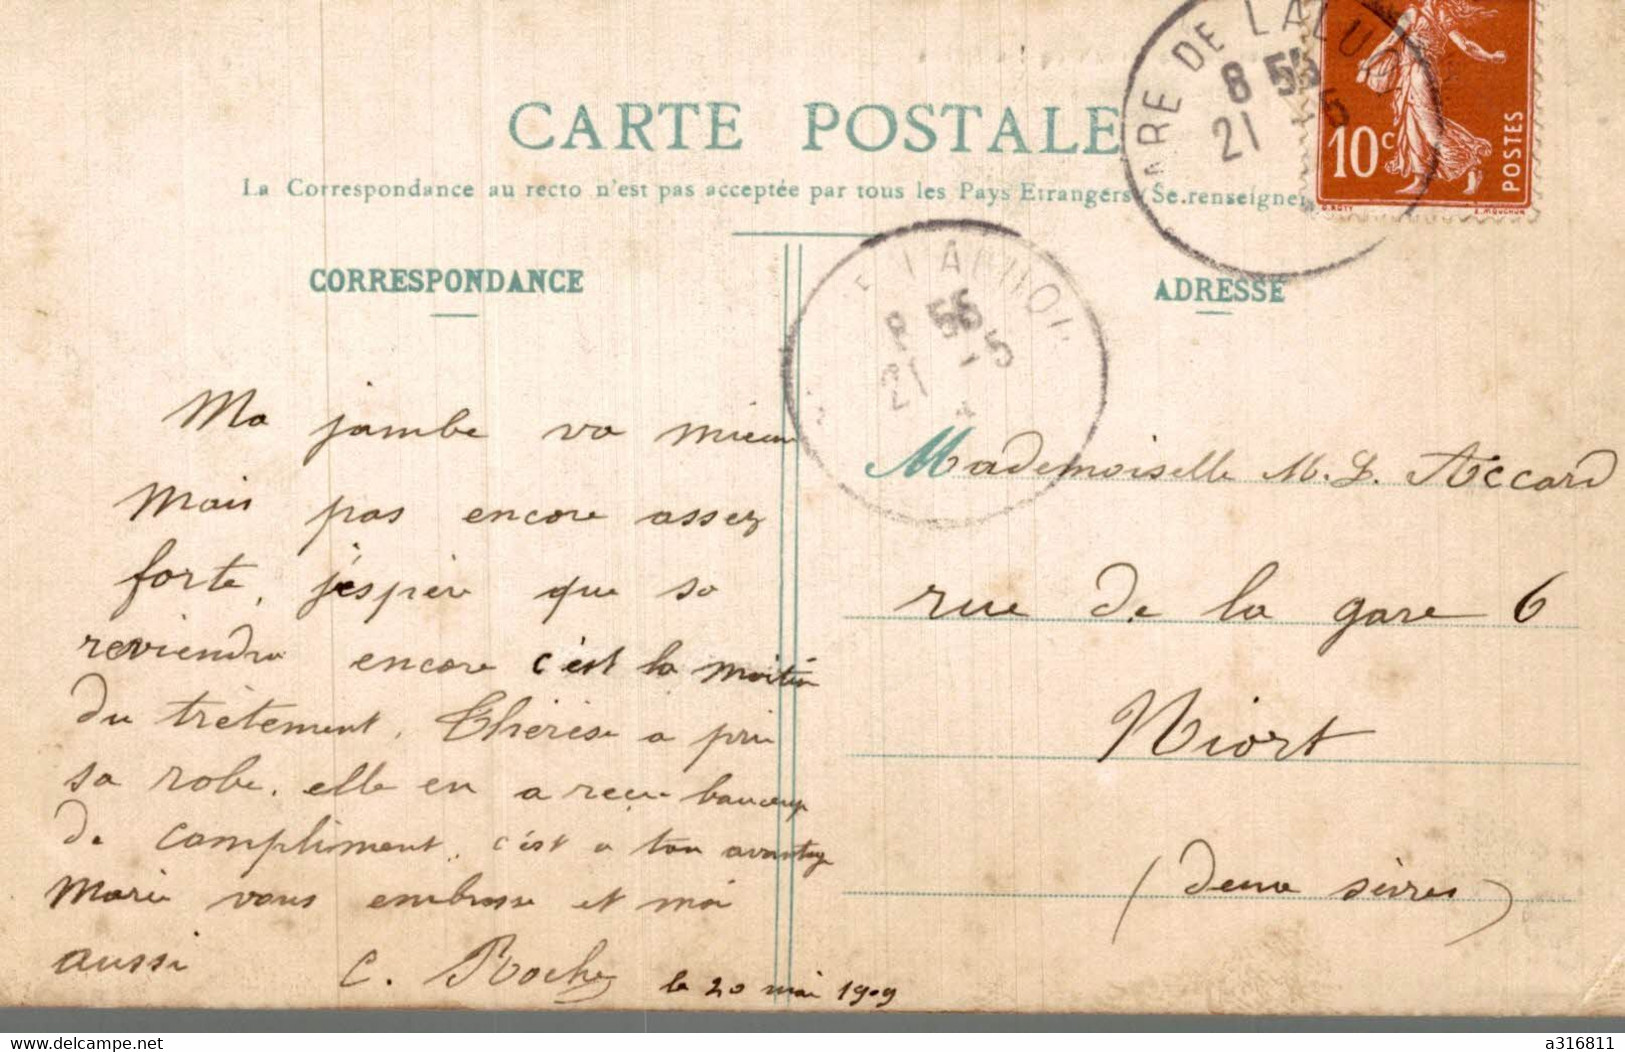 CARTE POSTALE
La Correspondance au recto n'est pas acceptée par tous les Pays Etrangers (Se renseigner
CORRESPONDANCE
ADRESSE
ARE DE LALU
8 55
21 5
10c
POSTES
O. ROTY
E. MOUCHON
8 55
21 5
Ma jambe va mieux
mais pas encore assez
forte, j'espère que sa
reviendra encore c'est la moitié
du trètement. Thérèse a pris
sa robe. elle en a reçu baucoup
de compliment. c'est a ton avantage
Marie vous embrasse et moi
aussi C. Roche le 20 mai 1909
Mademoiselle M. L. Accard
rue de la gare 6
Niort
(deux sèvres)
delcampe.net
a316811